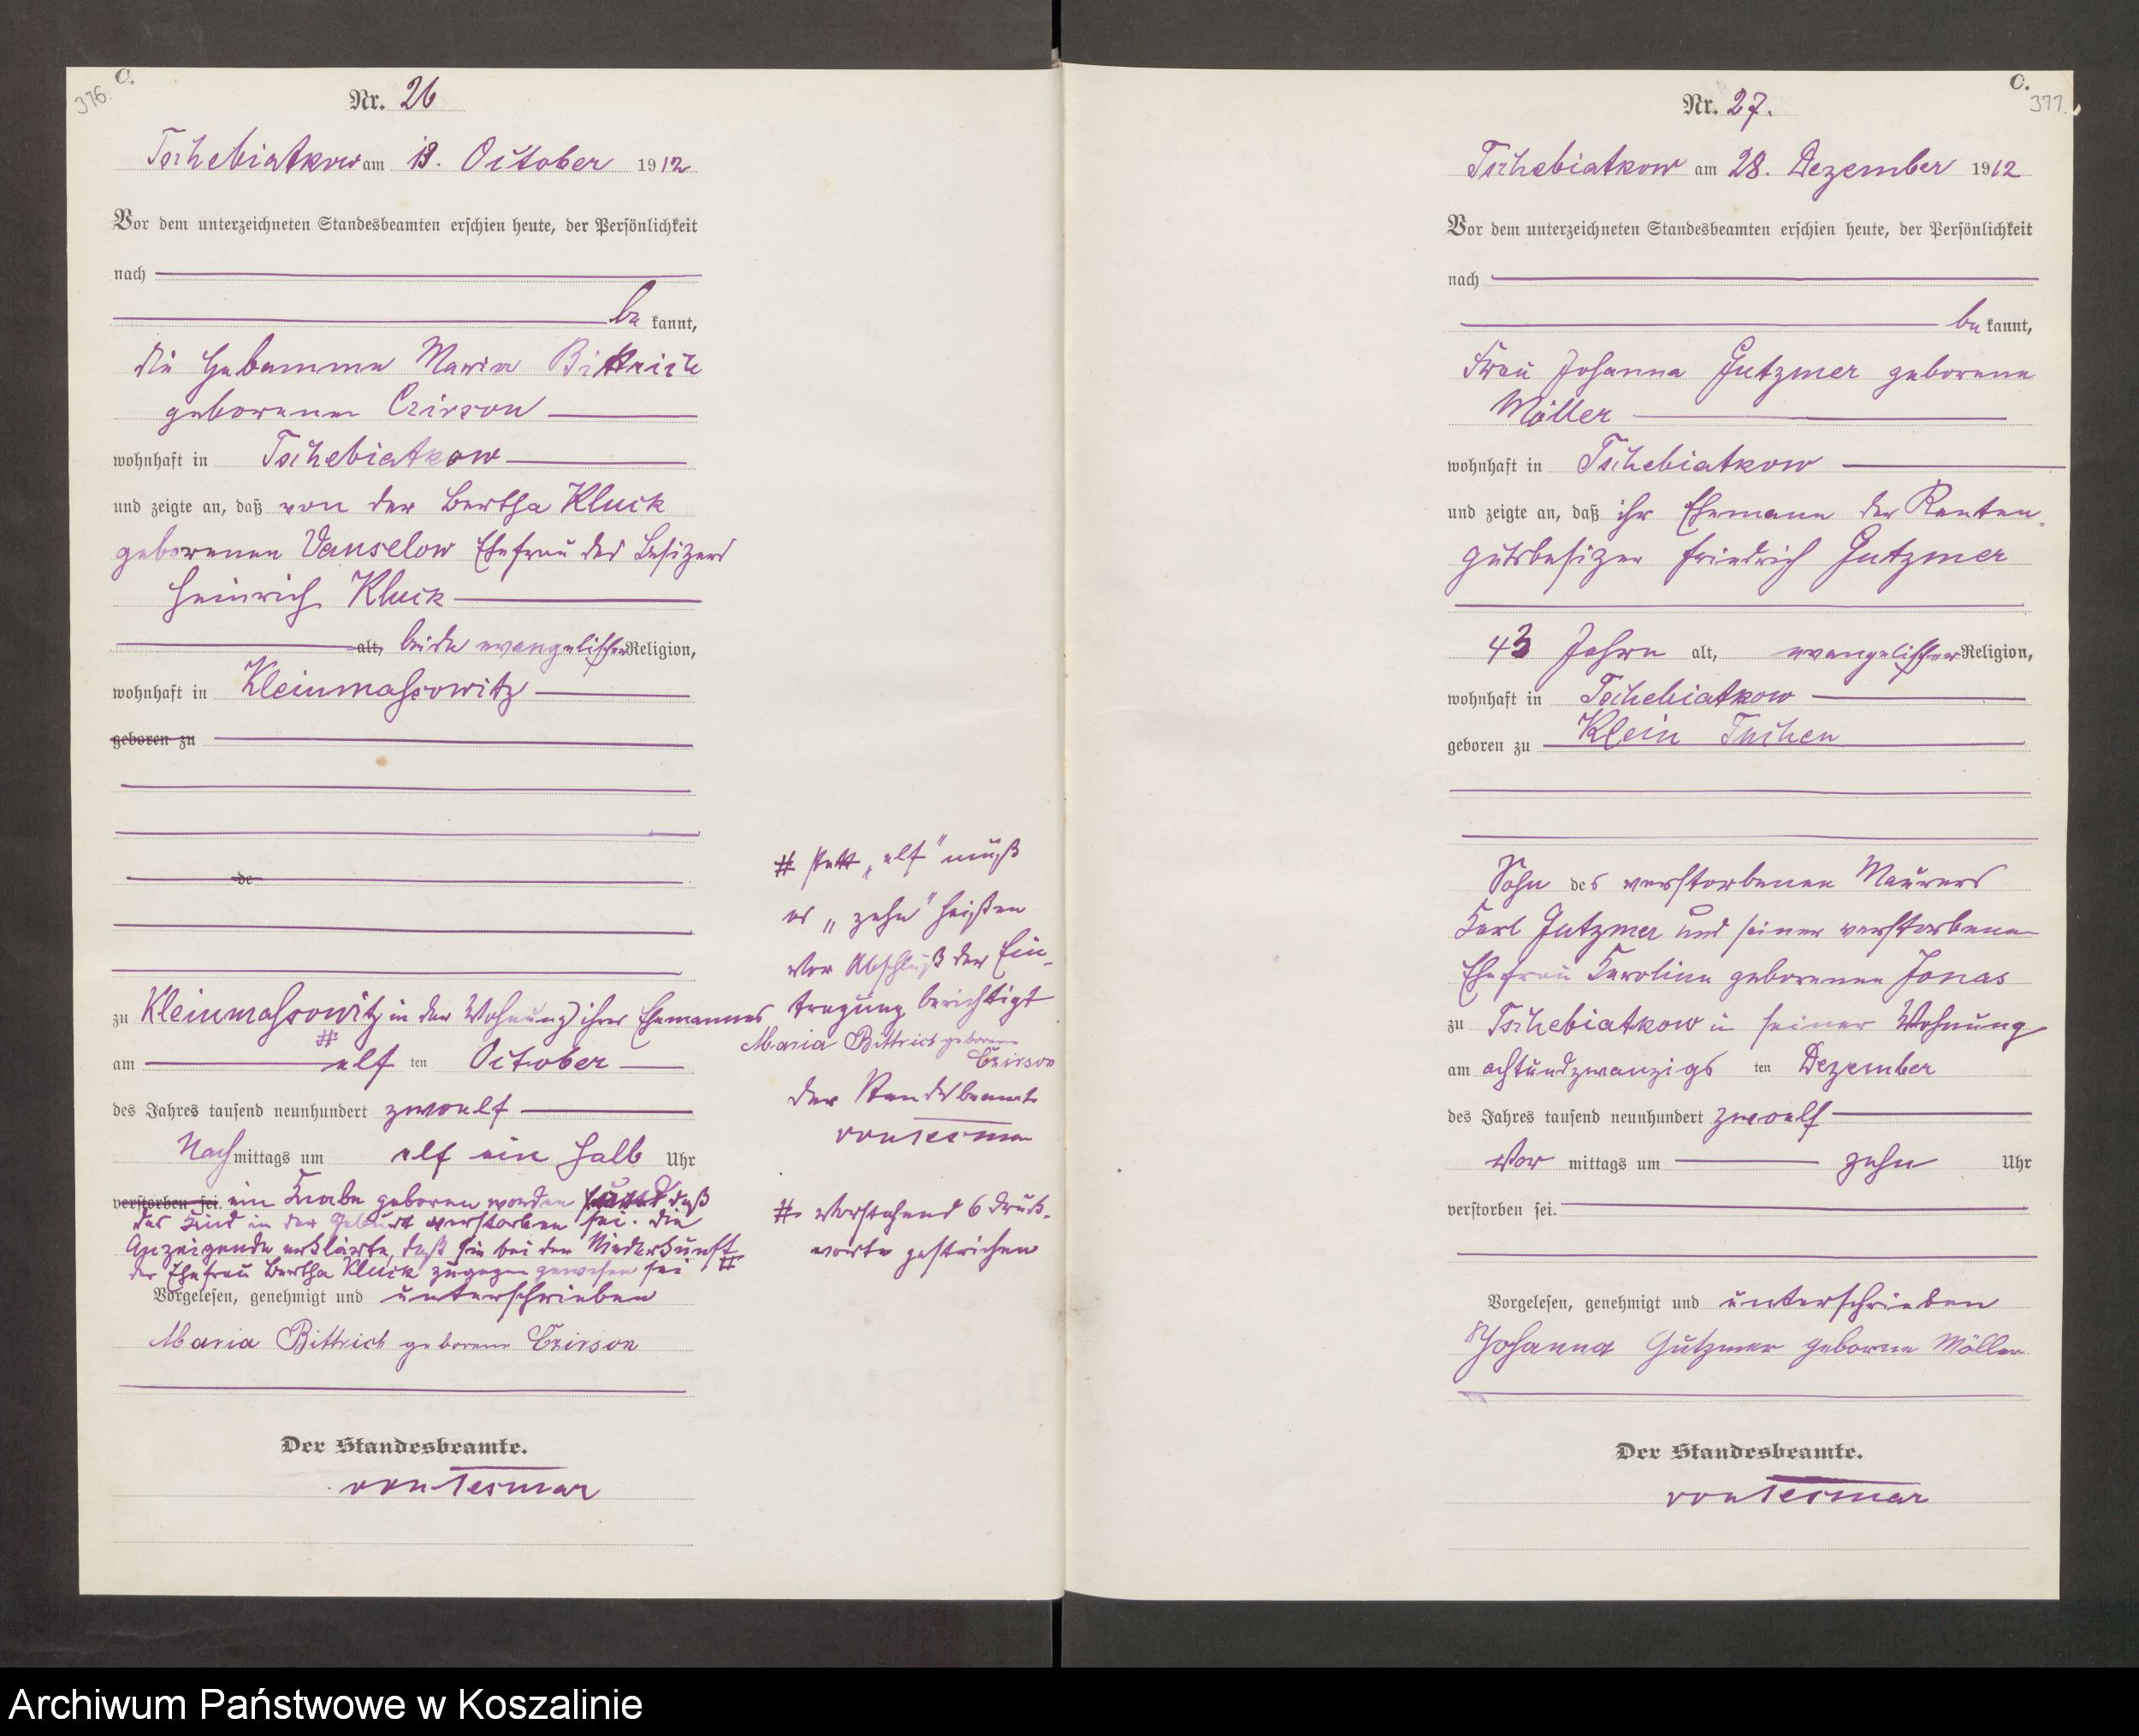 C.
376.
Nr. 26
Tschebiatkow am 18. October 1912
Vor dem unterzeichneten Standesbeamten erschien heute, der Persönlichkeit
nach
be kannt,
die Hebamme Maria Bittrich
geborenen Czirson
wohnhaft in Tschebiatkow
und zeigte an, daß von der Bertha Kluck
geborenen Vanselow Ehefrau des Besizers
Heinrich Kluck
alt, beide evangelischer Religion,
wohnhaft in Kleinmassowitz
geboren zu
de
zu Kleinmassowitz in der Wohnung ihres Ehemannes
#
am elf ten October
des Jahres tausend neunhundert zwoelf
Nach mittags um elf ein halb Uhr
verstorben sei. ein Knabe geboren worden und daß
das Kind in der Geburt verstorben sei. Die
Anzeigende erklärte, daß sie bei der Niederkunft
der Ehefrau Bertha Kluck zugegen gewesen sei #
Vorgelesen, genehmigt und unterschrieben
Maria Bittrich geborene Czirson
Der Standesbeamte.
von Tesmar
# statt „elf" muß
es „zehn" heißen
Vor Abschluß der Ein-
tragung berichtigt
Maria Bittrich geborene
Czirson
Der Standesbeamte
von Tesmar
# Vorstehend 6 Druck-
worte gestrichen
C.
377.
Nr. 27.
Tschebiatkow am 28. Dezember 1912
Vor dem unterzeichneten Standesbeamten erschien heute, der Persönlichkeit
nach
be kannt,
Frau Johanna Gutzmer geborene
Möller
wohnhaft in Tschebiatkow
und zeigte an, daß ihr Ehemann der Renten-
gutsbesizer Friedrich Gutzmer
43 Jahre alt, evangelischer Religion,
wohnhaft in Tschebiatkow
geboren zu Klein Tuchen
Sohn des verstorbenen Maurers
Karl Gutzmer und seiner verstorbenen
Ehefrau Karoline geborenen Jonas
zu Tschebiatkow in seiner Wohnung
am achtundzwanzigs ten Dezember
des Jahres tausend neunhundert zwoelf
Vor mittags um zehn Uhr
verstorben sei.
Vorgelesen, genehmigt und unterschrieben
Johanna Gutzmer geborne Möller
Der Standesbeamte.
von Tesmar
Archiwum Państwowe w Koszalinie